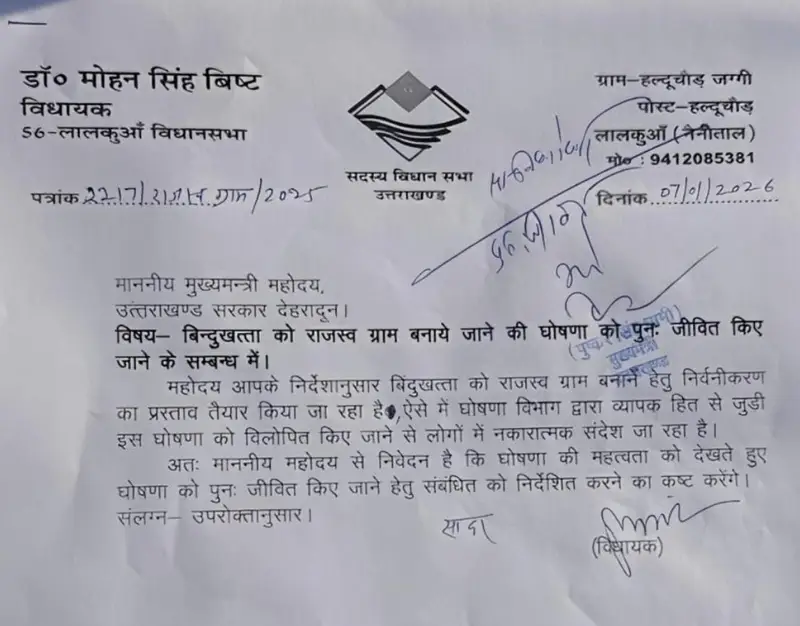 डॉ० मोहन सिंह बिष्ट
विधायक
56-लालकुआँ विधानसभा
पत्रांक 2217/राजस्व ग्राम/2025
सदस्य विधान सभा
उत्तराखण्ड
ग्राम-हल्दूचौड़ जग्गी
पोस्ट-हल्दूचौड़
लालकुआँ (नैनीताल)
मो० : 9412085381
दिनांक 07/01/2026
माननीय मुख्यमन्त्री महोदय,
उत्तराखण्ड सरकार देहरादून।
विषय- बिन्दुखत्ता को राजस्व ग्राम बनाये जाने की घोषणा को पुनः जीवित किए
जाने के सम्बन्ध में।
मुख्यमंत्री
महोदय आपके निर्देशानुसार बिंदुखत्ता को राजस्व ग्राम बनाने हेतु निर्वनीकरण
का प्रस्ताव तैयार किया जा रहा है, ऐसे में घोषणा विभाग द्वारा व्यापक हित से जुडी
इस घोषणा को विलोपित किए जाने से लोगों में नकारात्मक संदेश जा रहा है।
अतः माननीय महोदय से निवेदन है कि घोषणा की महत्वता को देखते हुए
घोषणा को पुनः जीवित किए जाने हेतु संबंधित को निर्देशित करने का कष्ट करेंगे।
संलग्न- उपरोक्तानुसार।
सादर
(विधायक)